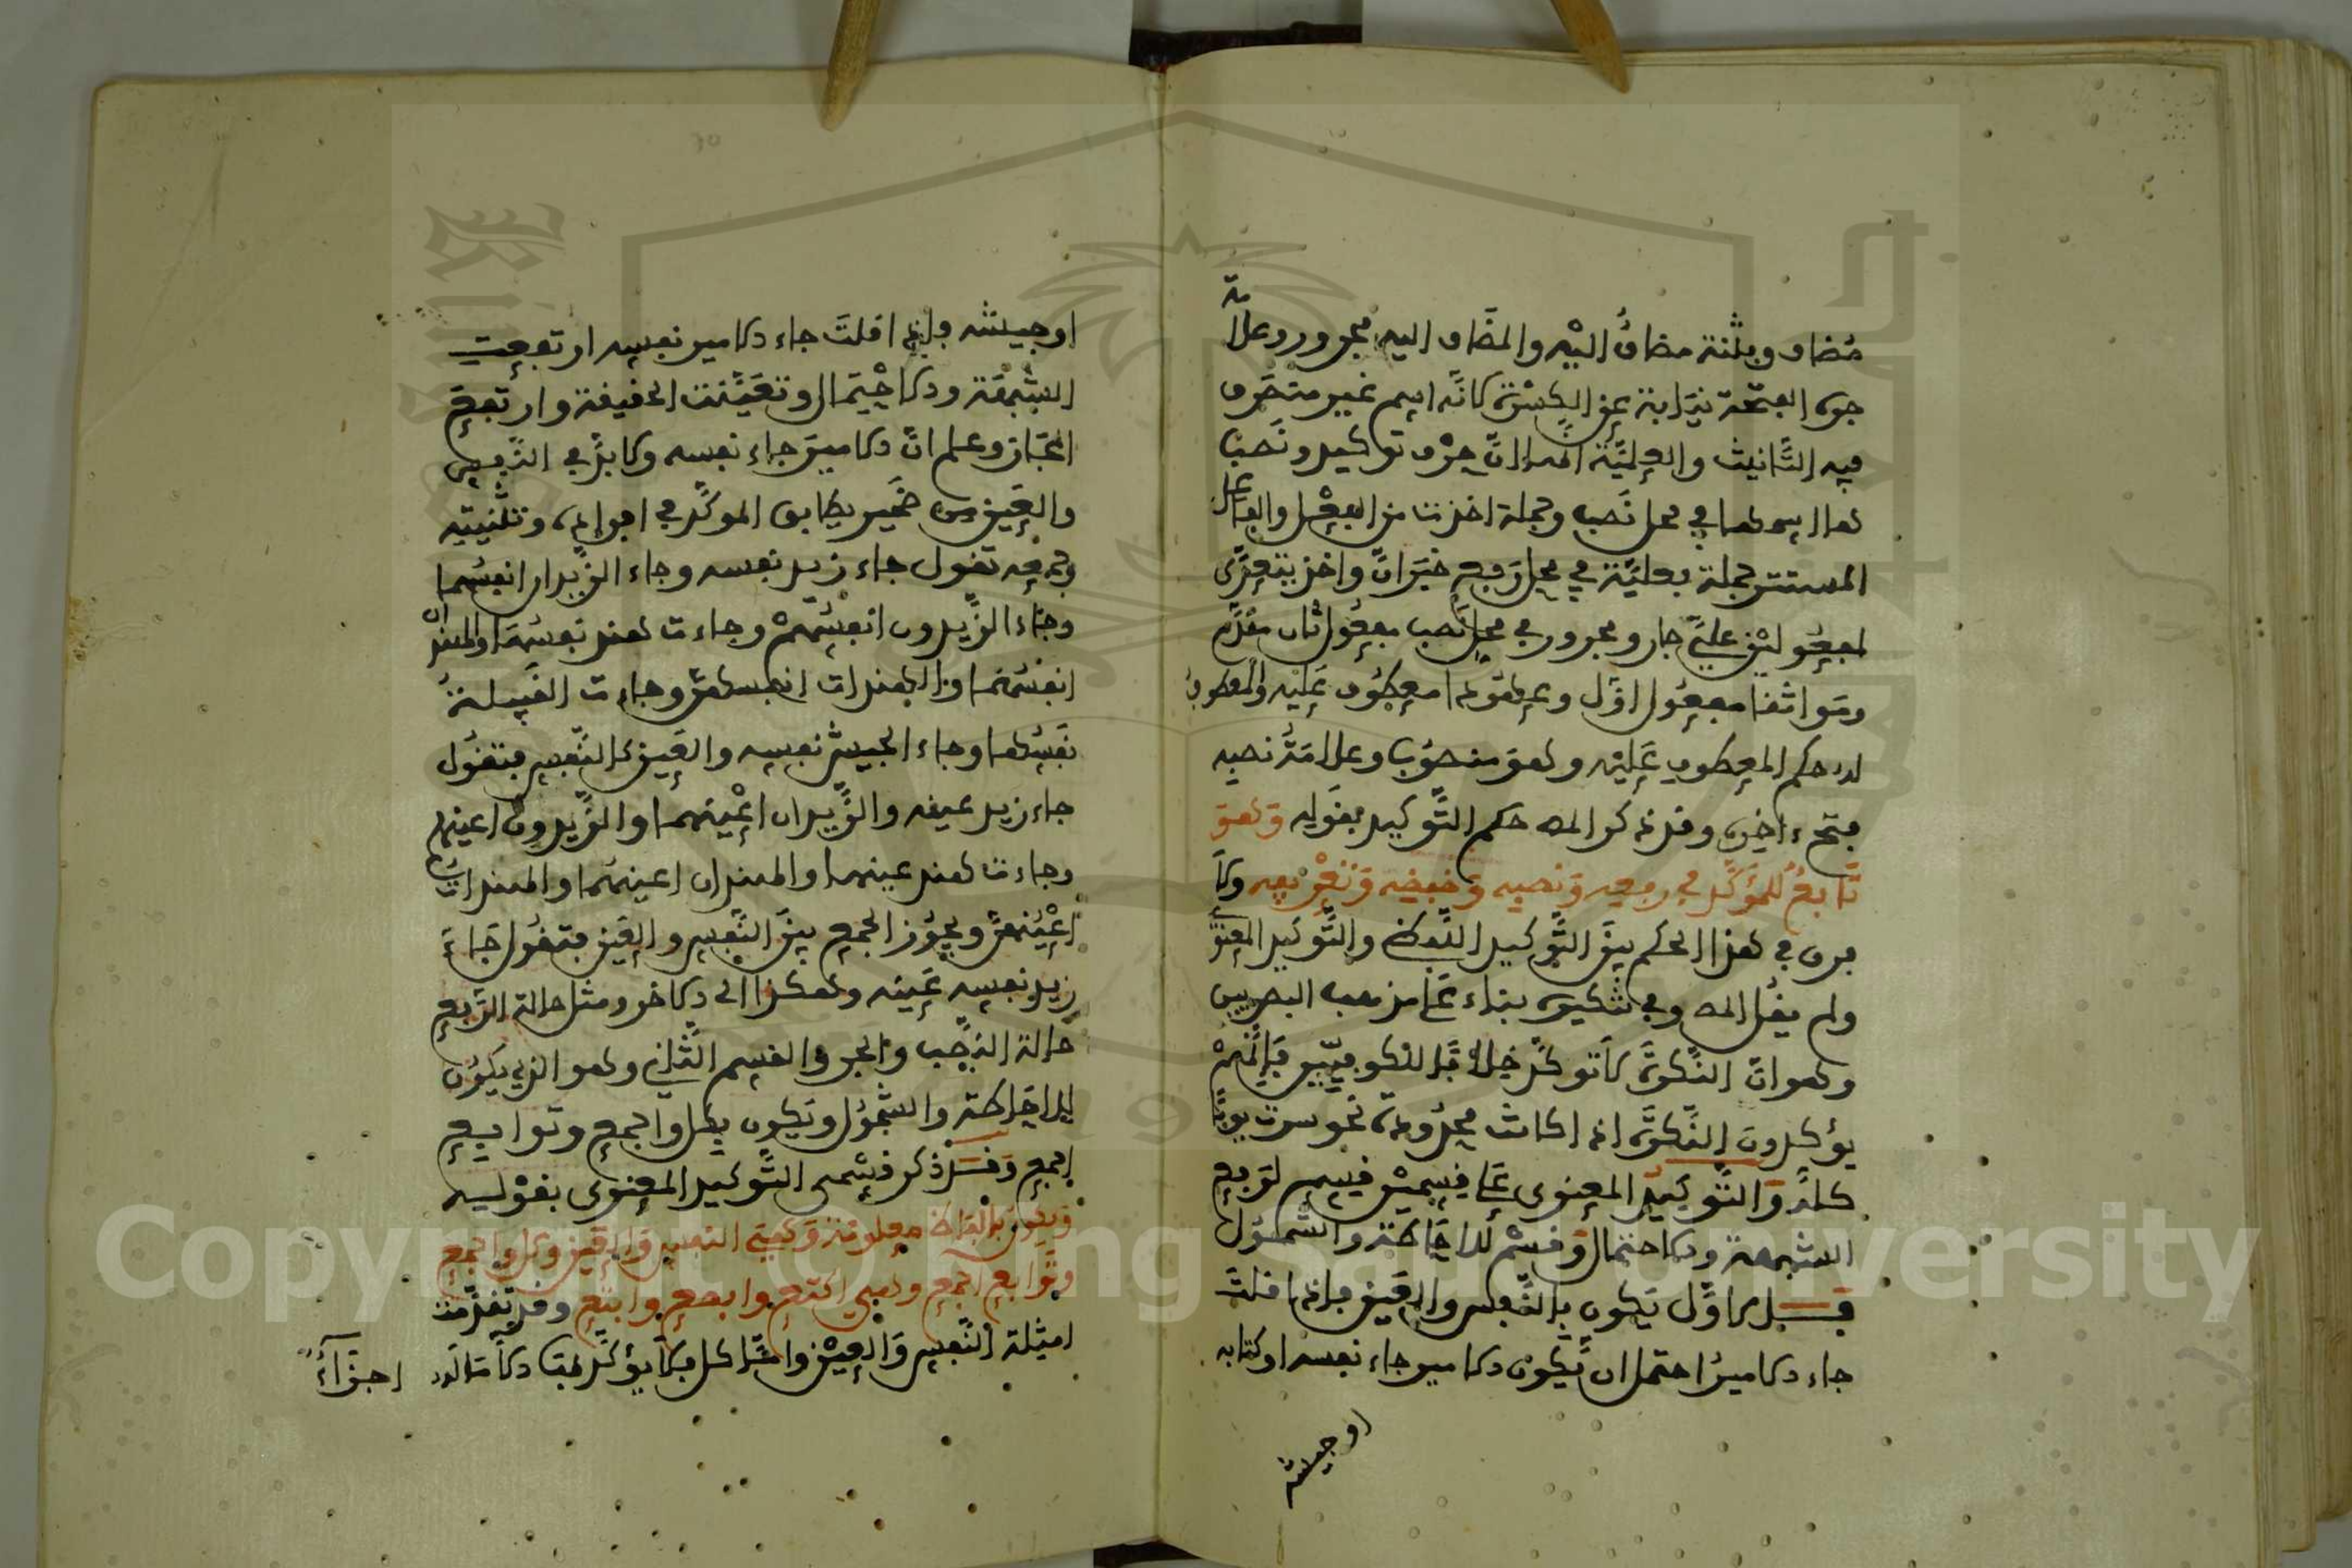 مضاف وبثنة مضاف اليه والمضاف اليه مجرور وعلامة
جره الفتحة نيابة عن الكسرة لانه اسم غير منصرف
فيه التانيث والعلمية ان حرف توكيد ونصب
لها اسمها في محل نصب وجملة اخذت من الفعل والفاعل
المستتر جملة فعلية في محل رفع خبر ان واخذ يتعدى
لمفعولين علي جار ومجرور في محل نصب مفعول ثان مقدم
ومواثقا مفعول اول وعهودا معطوف عليه والمعطوف
له حكم المعطوف عليه وهو منصوب وعلامة نصبه
فتح ءاخره وقد ذكر المص حكم التوكيد بقوله وهو
تابع للمؤكد في رفعه ونصبه وخفضه وتعريفه ولا
فرق في هذا الحكم بين التوكيد اللفظي والتوكيد المعنوي
ولم يقل المص وفي تنكيره بناء على مذهب البصريين
وهو ان النكرة لا تؤكد خلافا للكوفيين فانهم
يؤكدون النكرة اذا كانت محدودة نحو سرت يوما
كله والتوكيد المعنوي على قسمين قسم لرفع
الشبهة والاحتمال وقسم للاحاطة والشمول
فالاول يكون بالنفس والعين فاذا قلت
جاء الامير احتمل ان يكون الامير جاء نفسه او كتابه
او جيشه
او جيشه فاذا قلت جاء الامير نفسه ارتفعت
الشبهة والاحتمال وتعينت الحقيقة وارتفع
المجاز وعلم ان الامير جاء نفسه ولا بد في النفس
والعين من ضمير يطابق الموكد في افراده وتثنيته
وجمعه تقول جاء زيد نفسه وجاء الزيدان انفسهما
وجاء الزيدون انفسهم وجاءت هند نفسها والهندان
انفسهما والهندات انفسهن وجاءت القبيلة
نفسها وجاء الجيش نفسه والعين كالنفس فتقول
جاء زيد عينه والزيدان اعينهما والزيدون اعينهم
وجاءت هند عينها والهندان اعينهما والهندات
اعينهن ويجوز الجمع بين النفس والعين فتقول جاء
زيد نفسه عينه وهكذا الى الاخر ومثل حالة الرفع
حالة النصب والجر والقسم الثاني وهو الذي يكون
للاحاطة والشمول ويكون بكل واجمع وتوابع
اجمع وقد ذكر قسمي التوكيد المعنوي بقوله
ويكون بالفاظ معلومة وهي النفس والعين وكل واجمع
وتوابع اجمع وهي اكتع وابصع وابتع وقد تقدمت
امثلة النفس والعين واما كل فلا يؤكد بها الا ما له
اجزاء